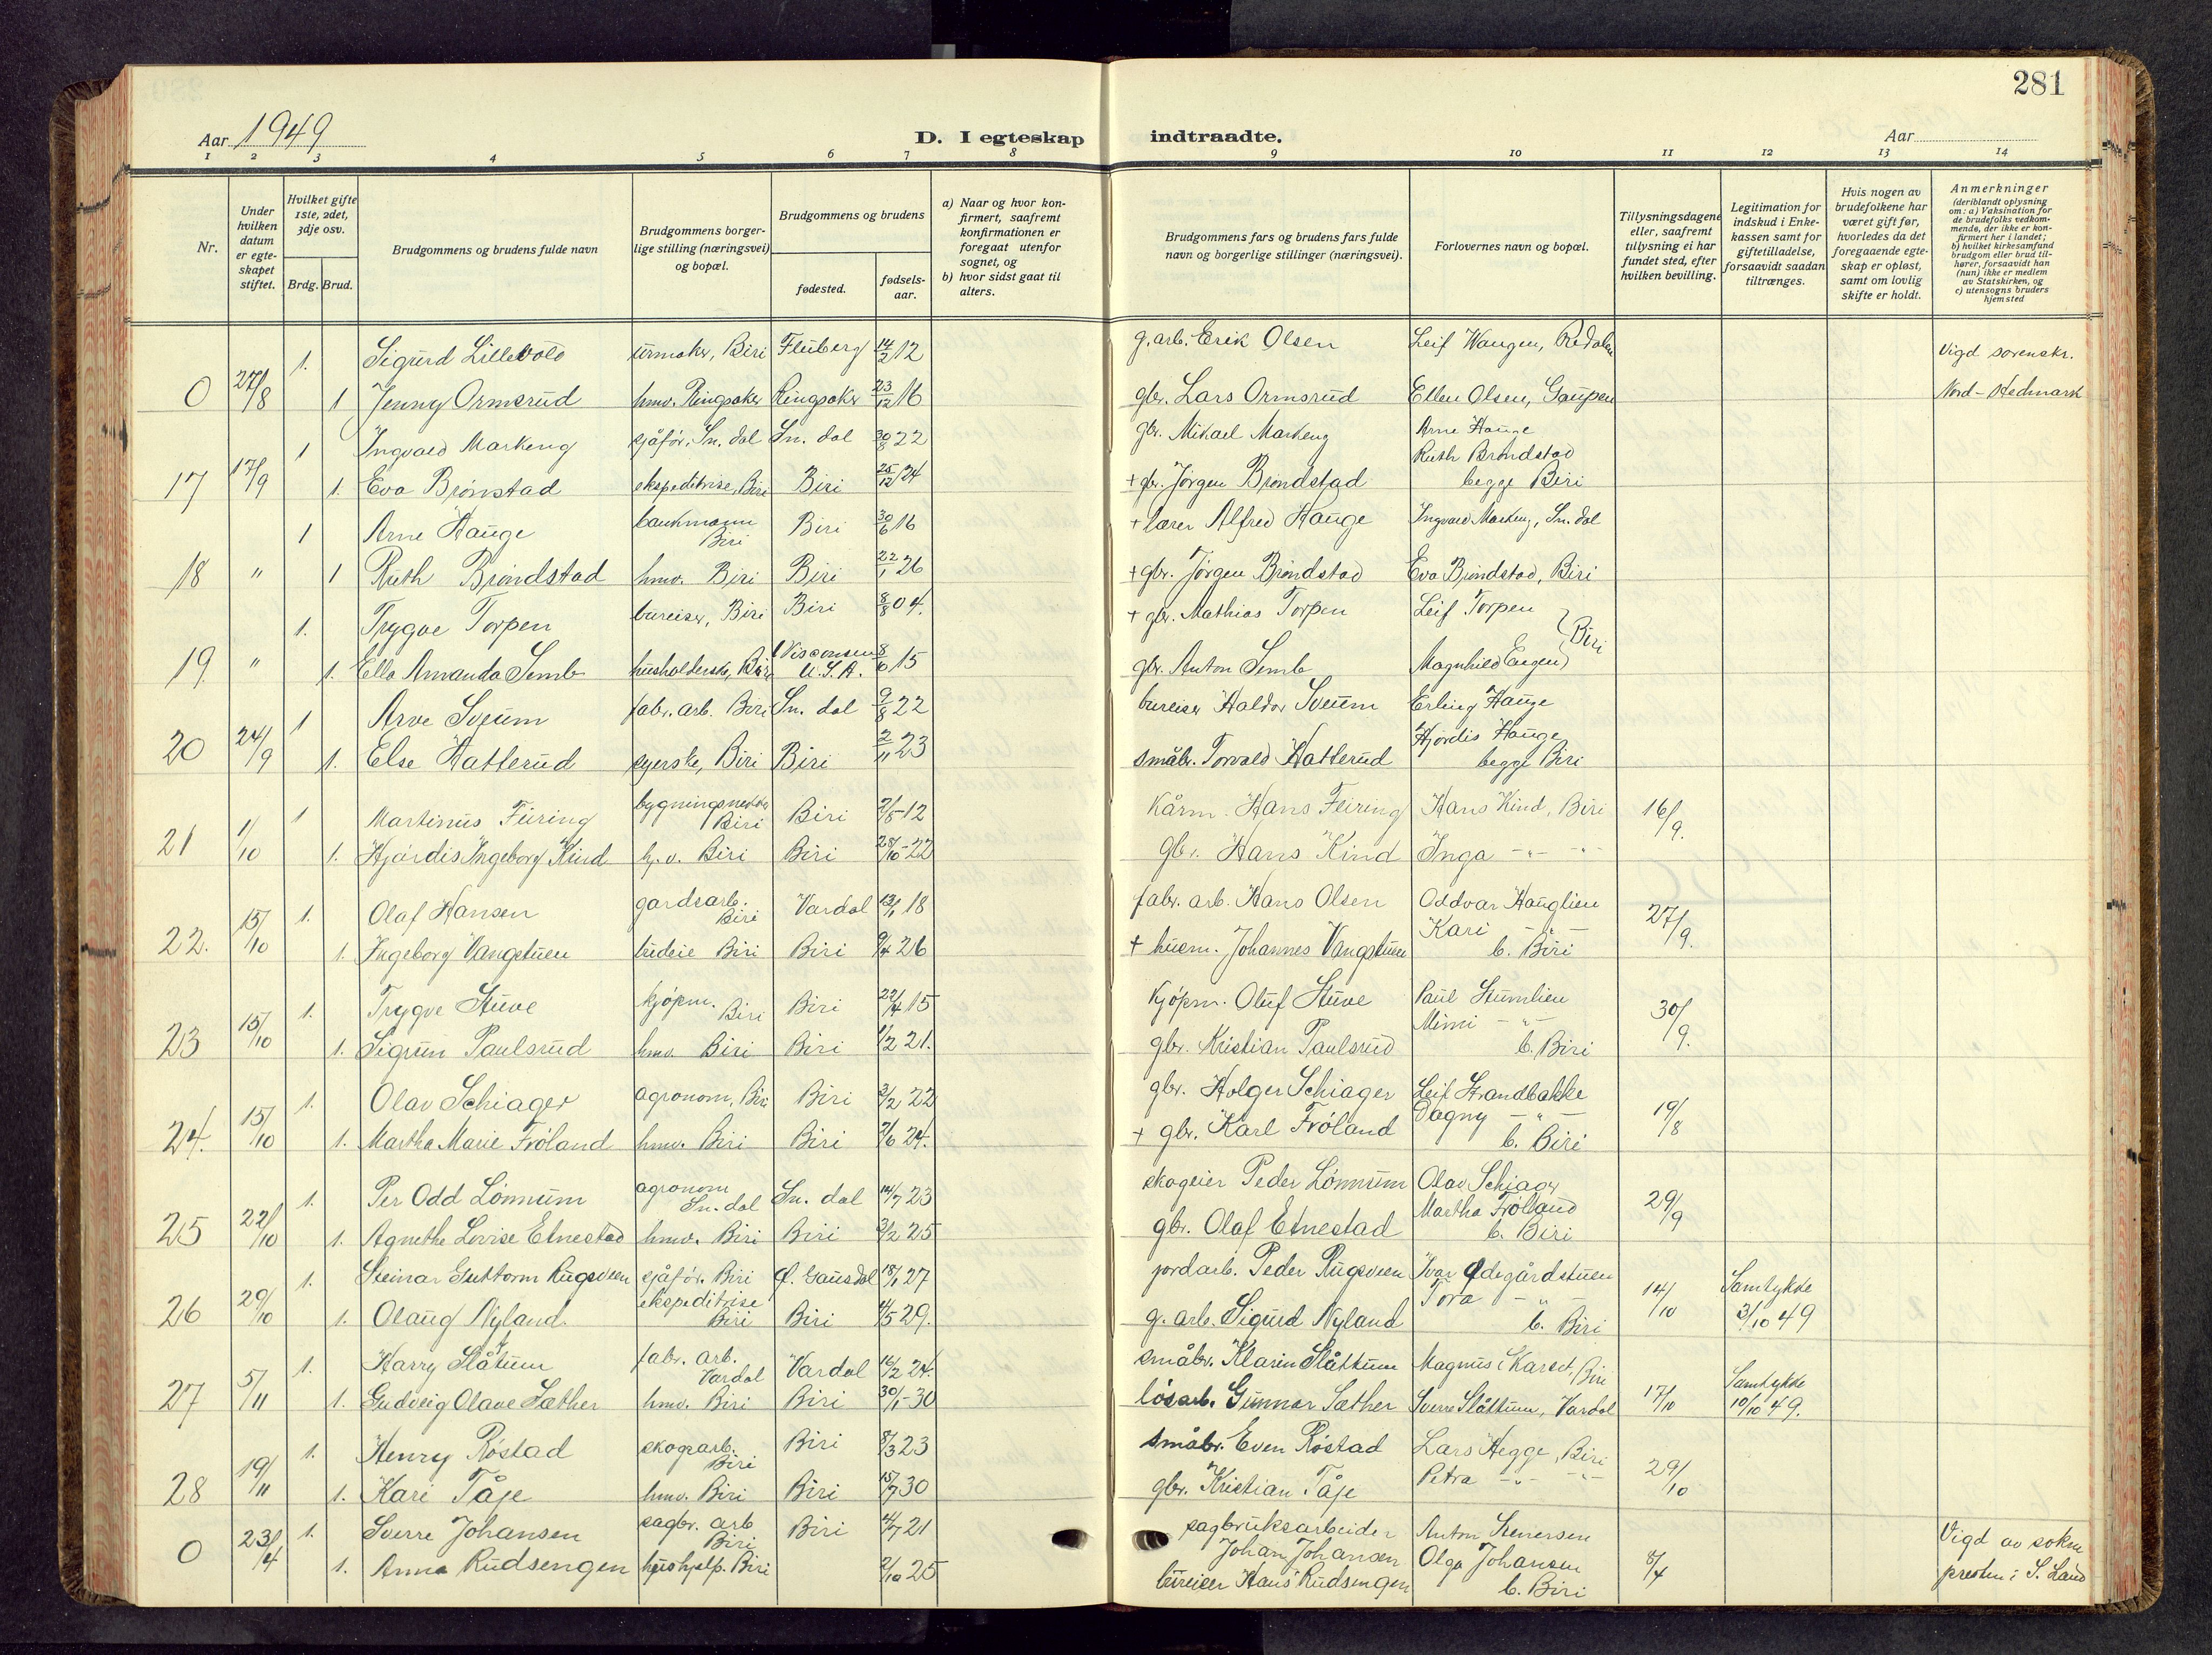 281
Aar 1949
D. I egteskap indtraadte.
Aar
1 2 3 4 5 6 7 8 9 10 11 12 13 14
Nr.
Under hvilken datum er egteskapet stiftet.
Hvilket gifte 1ste, 2det, 3dje osv.
Brdg. Brud.
Brudgommens og brudens fulde navn
Brudgommens borgerlige stilling (næringsvei) og bopæl.
Brudgommens og brudens
fødested.
fødselsaar.
a) Naar og hvor konfirmert, saafremt konfirmationen er foregaat utenfor sognet, og
b) hvor sidst gaat til alters.
Brudgommens fars og brudens fars fulde navn og borgerlige stillinger (næringsvei).
Forlovernes navn og bopæl.
Tillysningsdagene eller, saafremt tillysning ei har fundet sted, efter hvilken bevilling.
Legitimation for indskud i Enkekassen samt for giftetilladelse, forsaavidt saadan tiltrænges.
Hvis nogen av brudefolkene har været gift før, hvorledes da det foregaaende egteskap er opløst, samt om lovlig skifte er holdt.
Anmerkninger (deriblandt oplysning om: a) Vaksination for de brudefolks vedkommende, der ikke er konfirmert her i landet; b) hvilket kirkesamfund brudgom eller brud tilhører, forsaavidt han (hun) ikke er medlem av Statskirken, og c) utensogns bruders hjemsted
1. Sigurd Lillevold urmaker, Biri Fluberg 14/2 12 g.arb. Erik Olsen Leif Wangen, Redalen Vigd sorenskr.
0 27/8 1 Jenny Ormsrud hmv. Ringsaker Ringsaker 23/12 16 gbr. Lars Ormsrud Ellen Olsen, Gaupen Nord-Hedmark
1 Ingvald Markeng sjåfør, Sn. dal Sn. dal 30/8 22 gbr. Mikael Markeng Arne Hauge
17 17/9 1. Eva Brønstad ekspeditrise, Biri Biri 25/12 24 + gbr. Jørgen Brøndstad Ruth Brøndstad begge Biri
1 Arne Hauge bankmann Biri Biri 30/6 16 + lærer Alfred Hauge Ingvald Markeng, Sn. dal
18 " 1 Ruth Brøndstad hmv. Biri Biri 22/1 26 + gbr. Jørgen Brøndstad Eva Brøndstad, Biri
1. Trygve Torpen bureiser, Biri Biri 8/8 04. + gbr. Mathias Torpen Leif Torpen } Biri
19 " 1. Ella Amanda Semb husholderske, Biri Visconsen U.S.A. 8/6 15 gbr. Anton Semb Magnhild Engen
1 Arve Sveum fabr. arb. Biri Sn. dal 9/8 22 bureiser Haldor Sveum Erling Hauge
20 24/9 1. Else Hatterud syerske, Biri Biri 2/11 23 småbr. Torvald Hatterud Hjørdis Hauge begge Biri
1 Martinus Füring Biri Biri 2/5-12 Kårm. Hans Feiring Hans Kind, Biri 16/9.
21 1/10 1. Hjørdis Ingeborg Kind h.v. Biri Biri 28/10-22 gbr. Hans Kind Inga -"- -"-
1. Olaf Hansen gardsarb. Biri Vardal 13/1 18 fabr. arb. Hans Olsen Oddvar Hauglien 27/9.
22. 15/10 1. Ingeborg Vangstuen budeie Biri Biri 9/4 26 + husm. Johannes Vangstuen Kari -"- b. Biri
1. Trygve Stuve kjøpm. Biri Biri 22/4 15 Kjøpm. Oluf Stuve Paul Stumlien 30/9.
23 15/10 1. Sigrun Paulsrud hmv. Biri Biri 1/2 21. gbr. Kristian Paulsrud Mimi -"- b. Biri
1. Olav Schiager agronom, Biri Biri 3/2 22 gbr. Holger Schiager Leif Strandbakke 19/8
24. 15/10 1. Martha Marie Frøland hmv. Biri Biri 7/6 24. + gbr. Karl Frøland Dagny -"- b. Biri
1. Per Odd Lønnum agronom Sn. dal Sn. dal 14/7 23 skogeier Peder Lønnum Olav Schiager 29/9
25 22/10 1. Agnethe Lovise Etnestad hmv. Biri Biri 3/2 25 gbr. Olaf Etnestad Martha Frøland b. Biri
1. Steinar Guttorm Rugsveen sjåfør. Biri Ø. Gausdal 18/1 27 jordarb. Peder Rugsveen Ivar Ødegårdstuen 14/10 Samtykke
26 29/10 1. Olaug Nyland. ekspeditrise Biri Biri 4/5 29. g. arb. Sigurd Nyland Tora -"- b. Biri 3/10 49
1. Harry Slåttum fabr. arb. Vardal Vardal 16/2 24. småbr. Klarin Slåttum Magnus Karset, Biri 17/10 Samtykke
27 5/11 1. Gudveig Olave Sæther hmv. Biri Biri 30/1-30 løsarb. Gunnar Sæther Sverre Slåttum, Vardal 10/10 49.
1. Henry Røstad skogsarb. Biri Biri 8/3 23 småbr. Even Røstad Lars Hegge, Biri 29/10
28 19/11 1. Kari Tåje hmv. Biri Biri 15/7 30 gbr. Kristian Tåje Petra -"- -"-
1. Sverre Johansen sagbr. arb Biri Biri 4/7 21 sagbruksarbeider Johan Johansen Anton Stenersen 8/4 Vigd av sokne
0 23/4 1. Anna Rudsengen hushjelp. Biri 2/10 25 bureiser Hans Rudsengen Olga Johansen b. Biri presten i S. Land